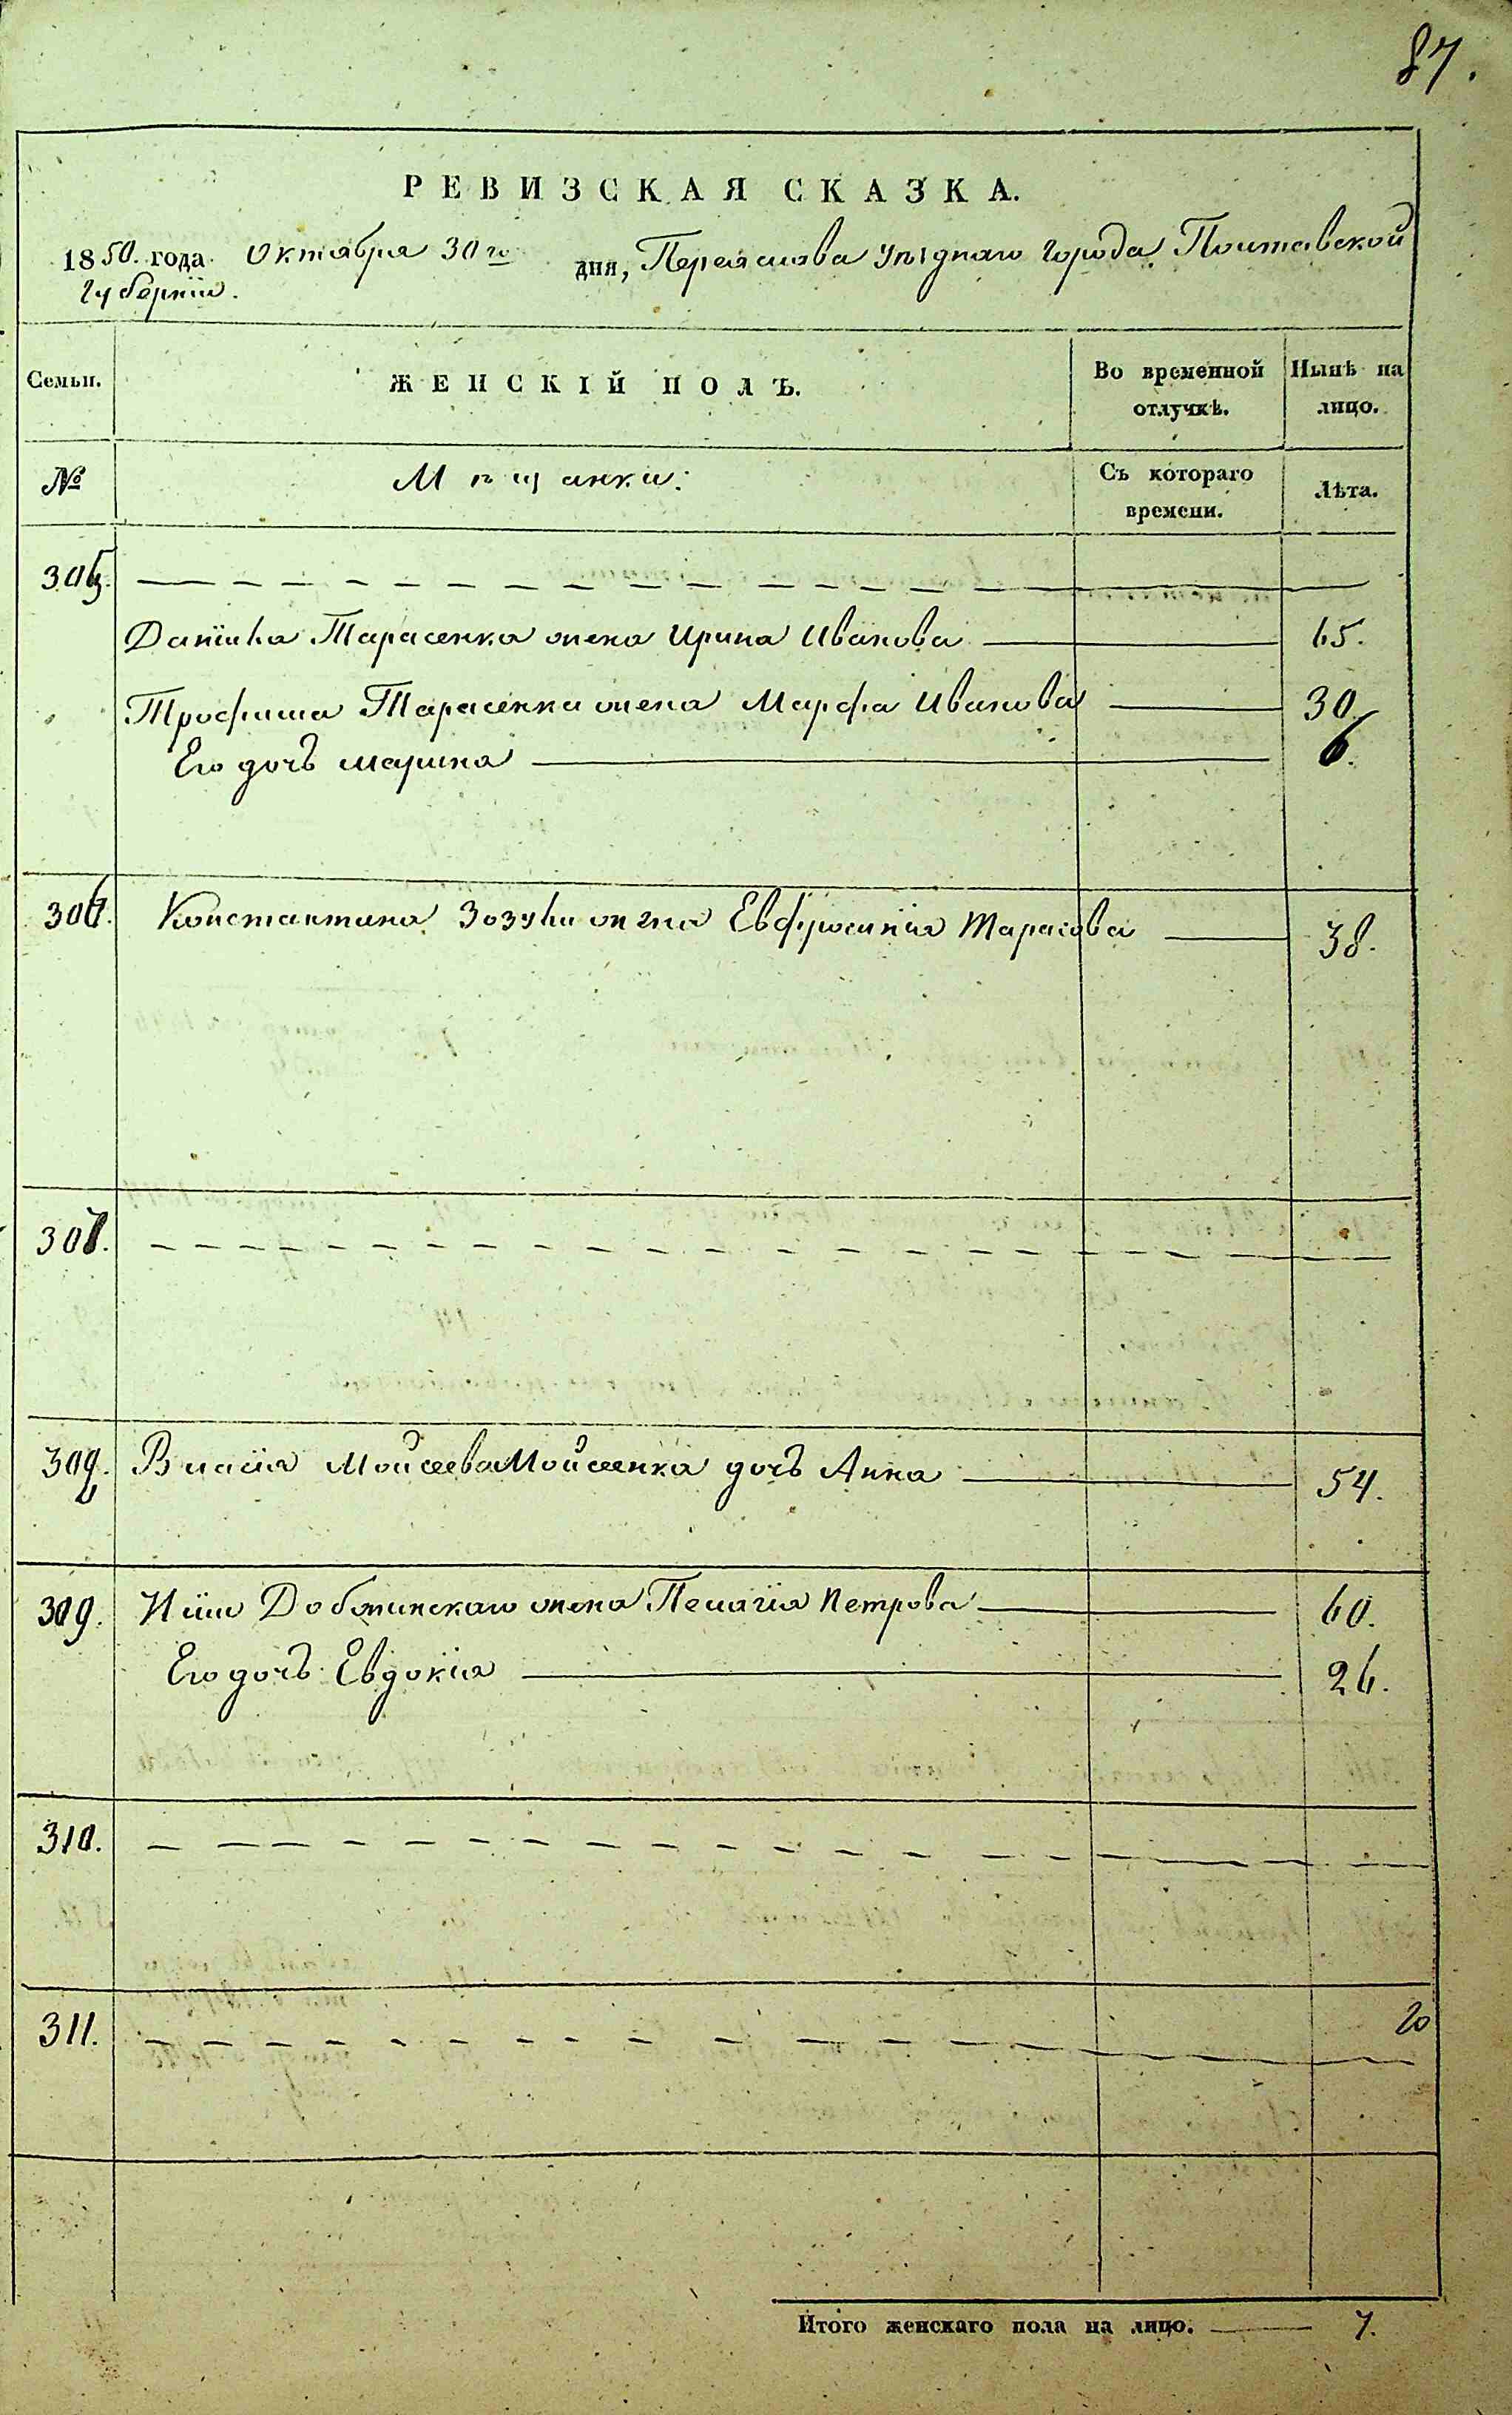 87.
РЕВИЗСКАЯ СКАЗКА.
1850. года. Октября 30го дня, Переяслова Уѣзднаго города Полтавской
Губерніи.
Семьи. ЖЕНСКІЙ ПОЛЪ. Во временной отлучкѣ. Нынѣ на лицо.
№ Мѣщанки: Съ котораго времени. Лѣта.
305.
Даніила Тарасенка жена Ирина Иванова 65.
Трофима Тарасенка жена Марфа Иванова 30.
Его дочь Марина 6.
306. Константина Зозули жена Евфросинія Тарасова 38.
307.
Власія Моисеева Моисеенка дочь Анна 54.
309. Иліи Добжинскаго жена Пелагія Петрова 60.
Его дочь Евдокія 26.
310.
311.
Итого женскаго пола на лицо. 7.